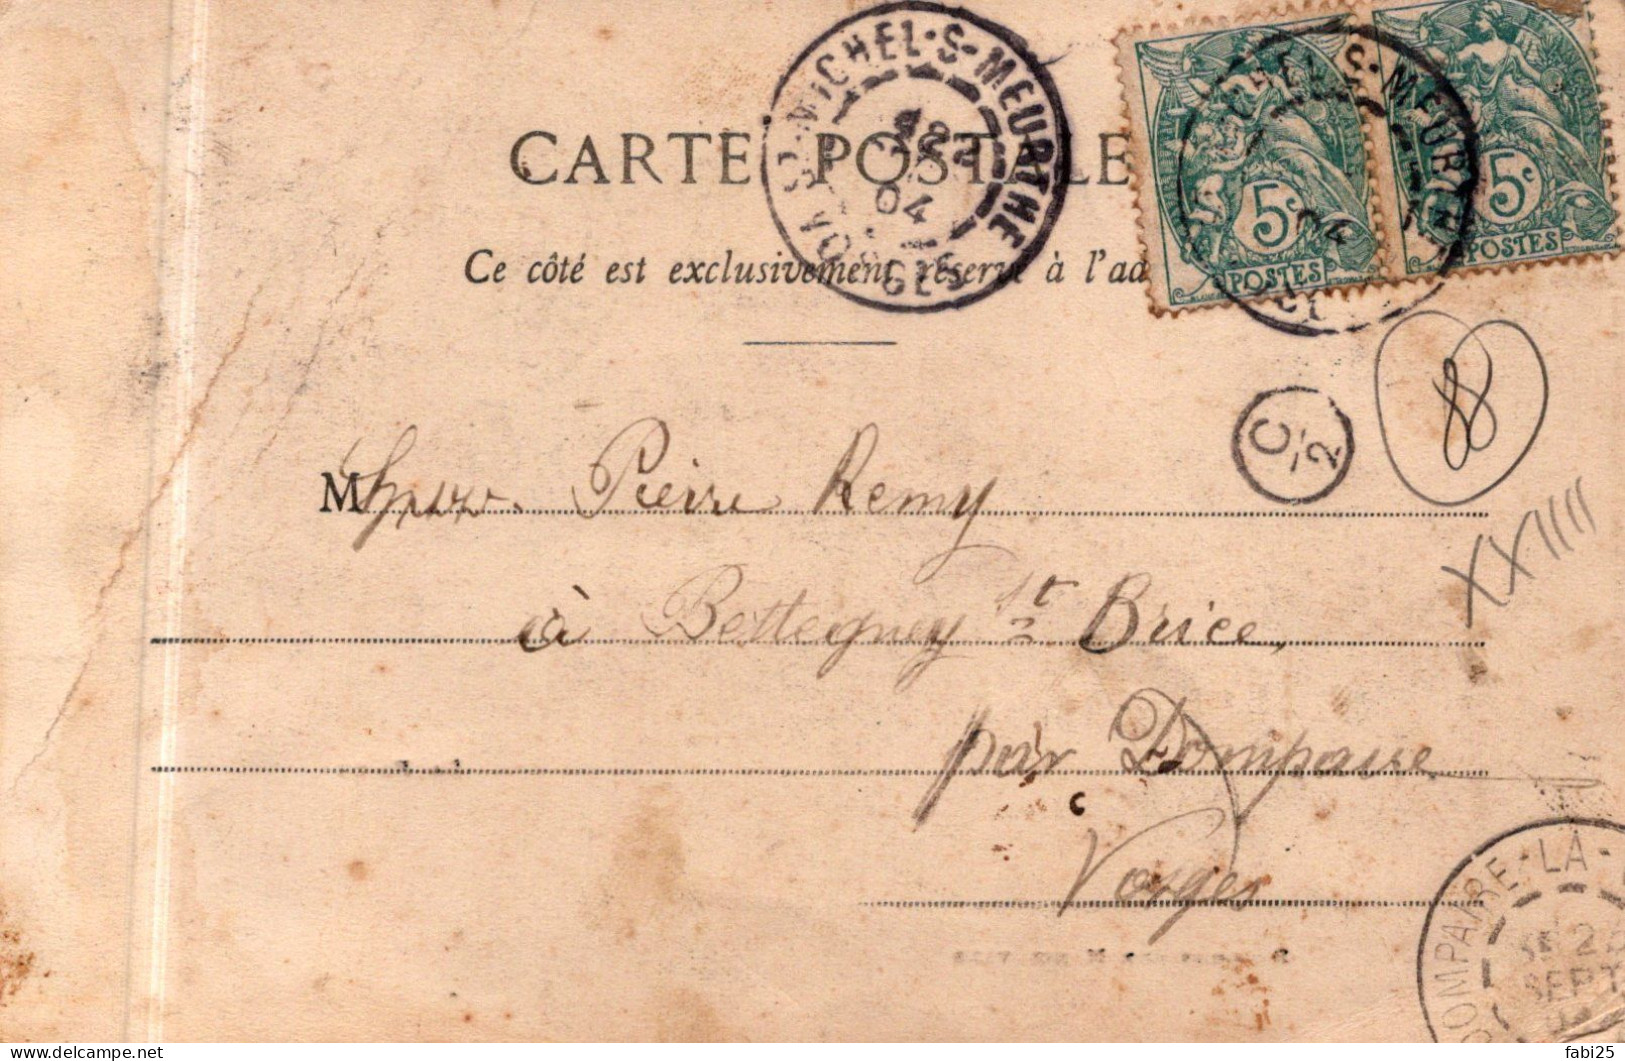 CARTE POSTALE
Ce côté est exclusivement réservé à l'ad
ST MICHEL-S-MEURTHE
04
VOSGES
5c
POSTES
5c
POSTES
MEURTHE
04
C
2
88
XXIIII
M Pierre Remy
à Bettegney st Brice,
par Dompaire
Vosges
DOMPAIRE-LA-
SEPT
fabi25